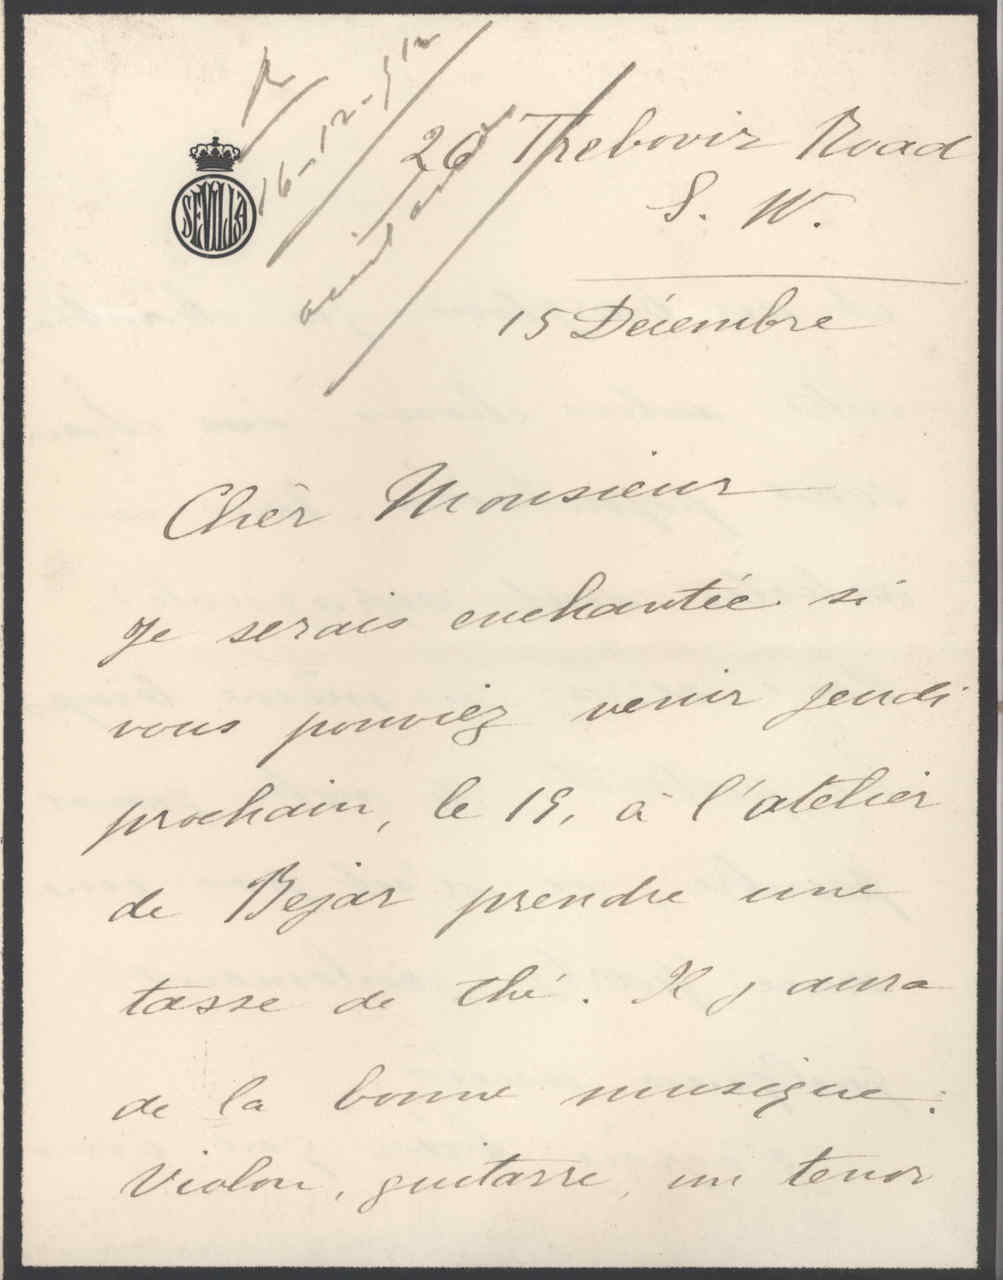 R
16-12-912
SEVILLA
26 Trebovir Road
S. W.
15 Décembre
Chèr Monsieur
Je serais enchantée si
vous pouviez venir jeudi
prochain, le 19, à l'atelier
de Bejar prendre une
tasse de thé. Il y aura
de la bonne musique:
Violon, guitarre, un tenor